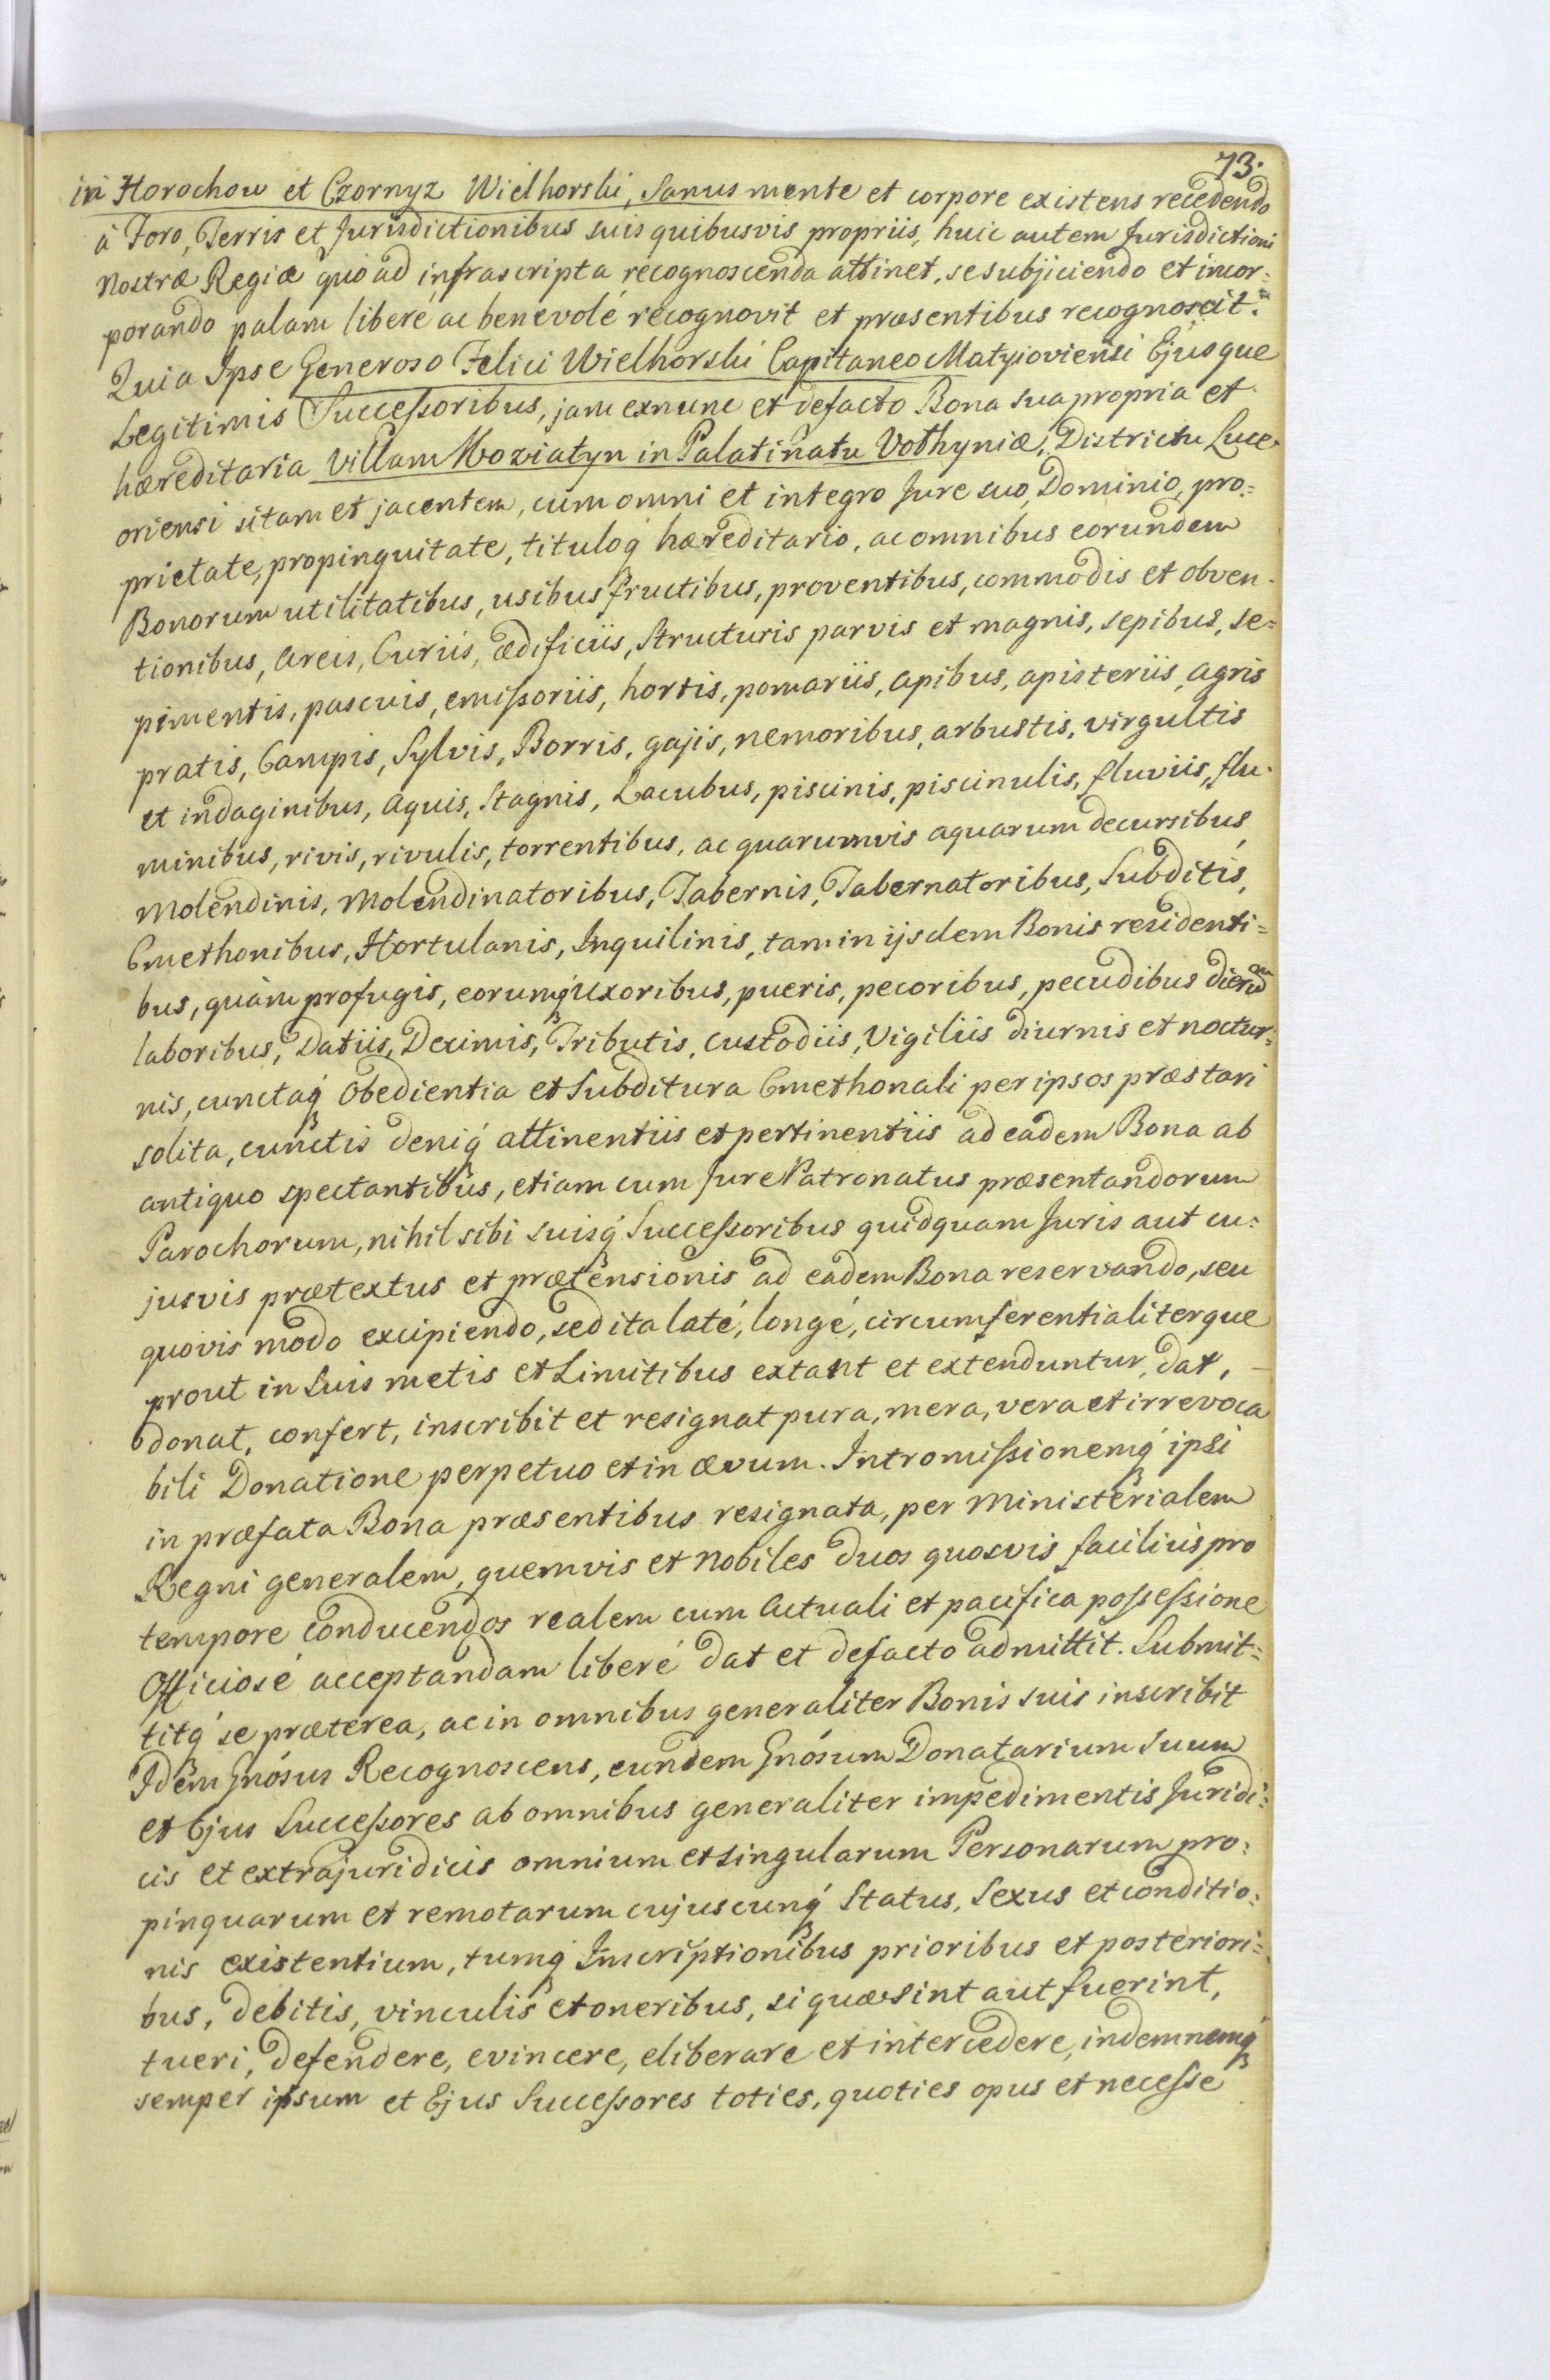 73.
in Horochow et Czornyz Wielhorski, Sanus mente et corpore existens recedendo
à Foro, Terris et Jurisdictionibus suis quibusvis propriis, huic autem Jurisdictioni
Nostræ Regiæ quo ad infrascripta recognoscenda attinet, se subjiciendo et incor=
porando palam liberé ac benevolé recognovit et præsentibus recognoscit.
Quia Ipse Generoso Felici Wielhorski Capitaneo Matyioviensi Ejusque
Legitimis Successoribus, jam exnunc et defacto Bona sua propria et
hæreditaria Villam Woziatyn in Palatinatu Volhyniæ, Districtu Luce=
oriensi sitam et jacentem, cum omni et integro Jure suo, Dominio, pro=
prietate, propinquitate, tituloq́ hæreditario, ac omnibus eorundem
Bonorum utilitatibus, usibus fructibus, proventibus, commodis et obven=
tionibus, areis, Curiis, ædificiis, Structuris parvis et magnis, sepibus, se=
pimentis, pascuis, emissoriis, hortis, pomariis, apibus, apisteriis, agris
pratis, Campis, Sylvis, Borris, gajis, nemoribus, arbustis, virgultis
et indaginibus, aquis, Stagnis, Lacubus, piscinis, piscinulis, fluviis, flu=
minibus, rivis, rivulis, torrentibus, ac quarumvis aquarum decursibus,
Molendinis, Molendinatoribus, Tabernis, Tabernatoribus, Subditis,
Cmethonibus, Hortulanis, Inquilinis, tam in ijsdem Bonis residenti=
bus, quàm profugis, eorumq́ Uxoribus, pueris, pecoribus, pecudibus dierum
laboribus, Datiis, Decimis, Tributis, custodiis, Vigiliis diurnis et noctur=
nis, cunctaq́ obedientia et Subditura Cmethonali per ipsos præstari
solita, cunctis deniq́ attinentiis et pertinentiis ad eadem Bona ab
antiquo spectantibus, etiam cum Jure Patronatus præsentandorum
Parochorum, nihil sibi suisq́ Successoribus quidquam Juris aut cu=
jusvis prætextus et prætensionis ad eadem Bona reservando, seu
quovis modo excipiendo, sed ita laté, longé, circumferentialiterque
prout in suis metis et Limitibus extant et extenduntur, dat, —
donat, confert, inscribit et resignat pura, mera, vera et irrevoca
bili Donatione perpetuo et in ævum. Intromissionemq́ ipsi
in præfata Bona præsentibus resignata, per Ministerialem
Regni generalem, quemvis et Nobiles duos quosvis facilius pro
tempore conducendos realem cum actuali et pacifica possessione
Officiosé acceptandam liberé dat et defacto admittit. Submit=
titq́ se præterea, ac in omnibus generaliter Bonis suis inscribit
Idem Gnósus Recognoscens, eundem Gnósum Donatarium suum
et Ejus Successores ab omnibus generaliter impedimentis Juridi=
cis et extrajuridicis omnium et singularum Personarum pro=
pinquarum et remotarum cujuscunq́ Status, Sexus et conditio=
nis existentium, tumq́ Inscriptionibus prioribus et posteriori=
bus, debitis, vinculis et oneribus, si quæ sint aut fuerint,
tueri, defendere, evincere, eliberare et intercedere, indemnemq́
semper ipsum et Ejus Successores toties, quoties opus et necesse